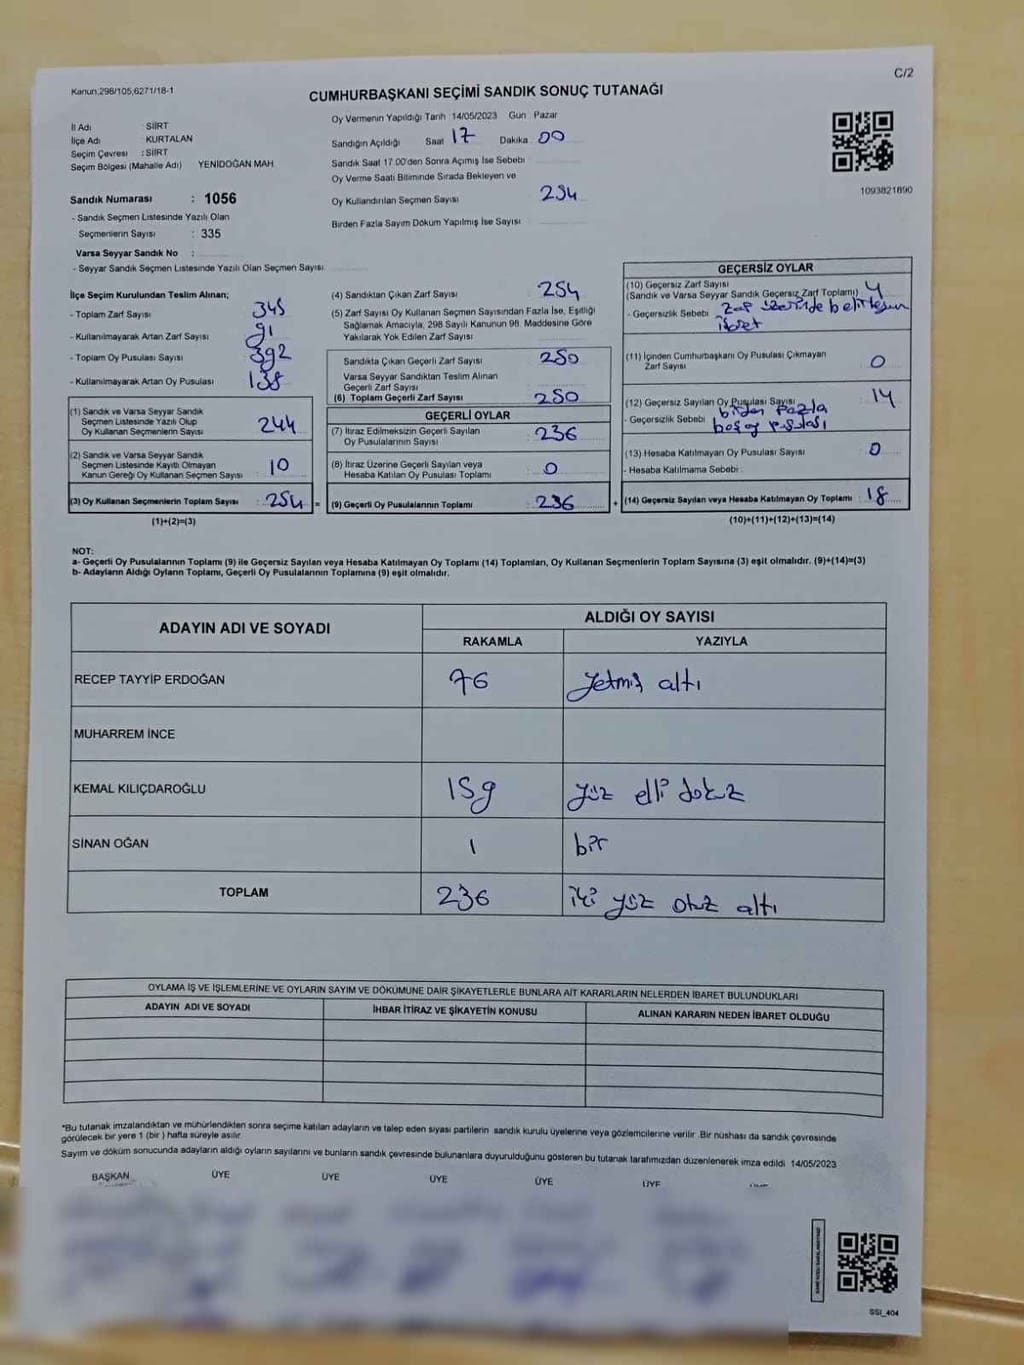 Kanun:298/105,6271/18-1
C/2
CUMHURBAŞKANI SEÇİMİ SANDIK SONUÇ TUTANAĞI
İl Adı SİİRT
İlçe Adı KURTALAN
Seçim Çevresi : SİİRT
Seçim Bölgesi (Mahalle Adı) YENİDOĞAN MAH.
Sandık Numarası : 1056
- Sandık Seçmen Listesinde Yazılı Olan
Seçmenlerin Sayısı : 335
Varsa Seyyar Sandık No :
- Seyyar Sandık Seçmen Listesinde Yazılı Olan Seçmen Sayısı
Oy Vermenin Yapıldığı Tarih 14/05/2023 Gün Pazar
Sandığın Açıldığı Saat 17 Dakika 00
Sandık Saat 17.00'den Sonra Açılmış İse Sebebi
Oy Verme Saati Bitiminde Sırada Bekleyen ve
Oy Kullandırılan Seçmen Sayısı 254
Birden Fazla Sayım Döküm Yapılmış İse Sayısı
1093821890
İlçe Seçim Kurulundan Teslim Alınan;
- Toplam Zarf Sayısı 345
- Kullanılmayarak Artan Zarf Sayısı 91
- Toplam Oy Pusulası Sayısı 392
- Kullanılmayarak Artan Oy Pusulası 138
(1) Sandık ve Varsa Seyyar Sandık
Seçmen Listesinde Yazılı Olup
Oy Kullanan Seçmenlerin Sayısı 244
(2) Sandık ve Varsa Seyyar Sandık
Seçmen Listesinde Kayıtlı Olmayan
Kanun Gereği Oy Kullanan Seçmen Sayısı 10
(3) Oy Kullanan Seçmenlerin Toplam Sayısı : 254 =
(1)+(2)=(3)
(4) Sandıktan Çıkan Zarf Sayısı 254
(5) Zarf Sayısı Oy Kullanan Seçmen Sayısından Fazla İse, Eşitliği
Sağlamak Amacıyla, 298 Sayılı Kanunun 98. Maddesine Göre
Yakılarak Yok Edilen Zarf Sayısı
Sandıkta Çıkan Geçerli Zarf Sayısı 250
Varsa Seyyar Sandıktan Teslim Alınan
Geçerli Zarf Sayısı
(6) Toplam Geçerli Zarf Sayısı 250
GEÇERLİ OYLAR
(7) İtiraz Edilmeksizin Geçerli Sayılan
Oy Pusulalarının Sayısı 236
(8) İtiraz Üzerine Geçerli Sayılan veya
Hesaba Katılan Oy Pusulası Toplamı 0
(9) Geçerli Oy Pusulalarının Toplamı 236 +
GEÇERSİZ OYLAR
(10) Geçersiz Zarf Sayısı
(Sandık ve Varsa Seyyar Sandık Geçersiz Zarf Toplamı) 4
- Geçersizlik Sebebi : Zarf üzerinde belirleyen
işaret
(11) İçinden Cumhurbaşkanı Oy Pusulası Çıkmayan
Zarf Sayısı 0
(12) Geçersiz Sayılan Oy Pusulası Sayısı 14
- Geçersizlik Sebebi : birden fazla
boş oy pusulası
(13) Hesaba Katılmayan Oy Pusulası Sayısı 0
- Hesaba Katılmama Sebebi :
(14) Geçersiz Sayılan veya Hesaba Katılmayan Oy Toplamı : 18
(10)+(11)+(12)+(13)=(14)
NOT:
a- Geçerli Oy Pusulalarının Toplamı (9) ile Geçersiz Sayılan veya Hesaba Katılmayan Oy Toplamı (14) Toplamları, Oy Kullanan Seçmenlerin Toplam Sayısına (3) eşit olmalıdır. (9)+(14)=(3)
b- Adayların Aldığı Oyların Toplamı, Geçerli Oy Pusulalarının Toplamına (9) eşit olmalıdır.
ADAYIN ADI VE SOYADI ALDIĞI OY SAYISI
RAKAMLA YAZIYLA
RECEP TAYYİP ERDOĞAN 76 yetmiş altı
MUHARREM İNCE
KEMAL KILIÇDAROĞLU 159 yüz elli dokuz
SİNAN OĞAN 1 bir
TOPLAM 236 iki yüz otuz altı
OYLAMA İŞ VE İŞLEMLERİNE VE OYLARIN SAYIM VE DÖKÜMÜNE DAİR ŞİKAYETLERLE BUNLARA AİT KARARLARIN NELERDEN İBARET BULUNDUKLARI
ADAYIN ADI VE SOYADI İHBAR İTİRAZ VE ŞİKAYETİN KONUSU ALINAN KARARIN NEDEN İBARET OLDUĞU
*Bu tutanak imzalandıktan ve mühürlendikten sonra seçime katılan adayların ve talep eden siyasi partilerin sandık kurulu üyelerine veya gözlemcilerine verilir. Bir nüshası da sandık çevresinde
görülecek bir yere 1 (bir) hafta süreyle asılır.
Sayım ve döküm sonucunda adayların aldığı oyların sayılarını ve bunların sandık çevresinde bulunanlara duyurulduğunu gösteren bu tutanak tarafımızdan düzenlenerek imza edildi 14/05/2023
BAŞKAN ÜYE ÜYE ÜYE ÜYE ÜYE
SSI_404